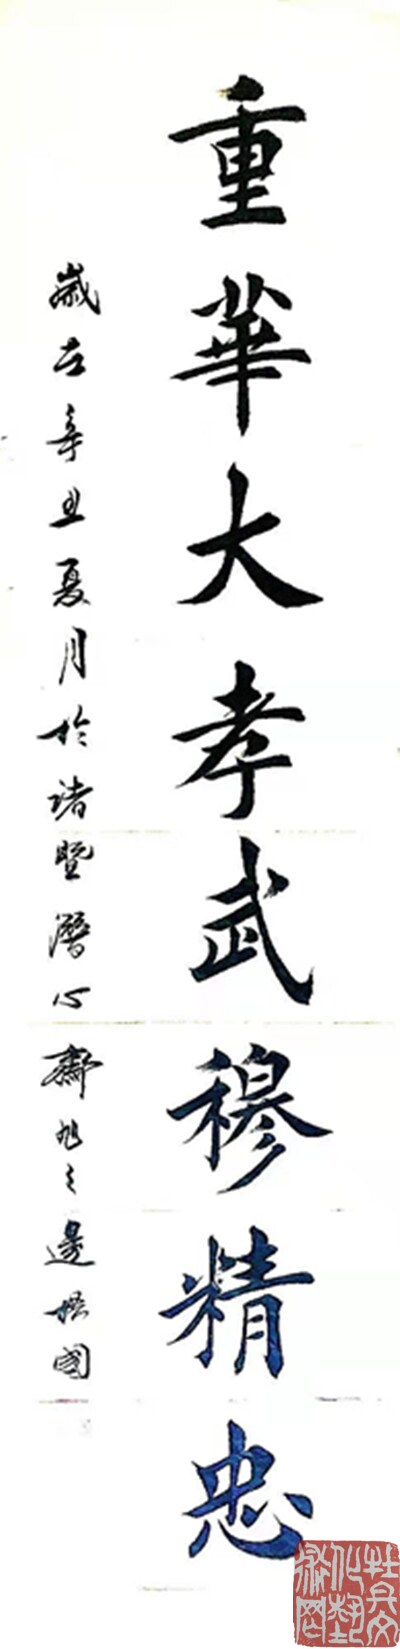 重華大孝武穆精忠
歲在辛丑夏月於諸暨潛心齋旭之邊振國